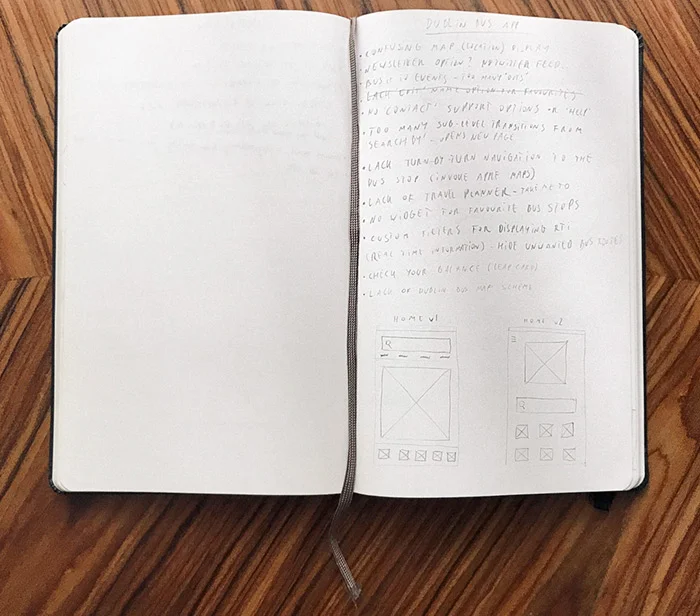 DUBLIN BUS APP
• CONFUSING MAP (LOCATION) DISPLAY
NEWSFEEDER OPTION? NO TWITTER FEED
TOO MANY "ADS"
• LACK EDIT NAME OPTION FOR FAVOURITES
• NO CONTACT/SUPPORT OPTIONS OR 'HELP'
• TOO MANY SUB-LEVEL TRANSITIONS FROM
SEARCH BY - OPENS NEW PAGE
• LACK TURN-BY-TURN NAVIGATION TO THE
BUS STOP (INVOKE APPLE MAPS)
• LACK OF TRAVEL PLANNER - TAKE ME TO
• NO WIDGET FOR FAVOURITE BUS STOPS
• CUSTOM FILTERS FOR DISPLAYING RTI
(REAL TIME INFORMATION) - HIDE UNWANTED BUS ROUTES
• CHECK YOUR BALANCE (LEAP CARD)
• LACK OF DUBLIN BUS MAP SCHEME
HOME V1
HOME V2